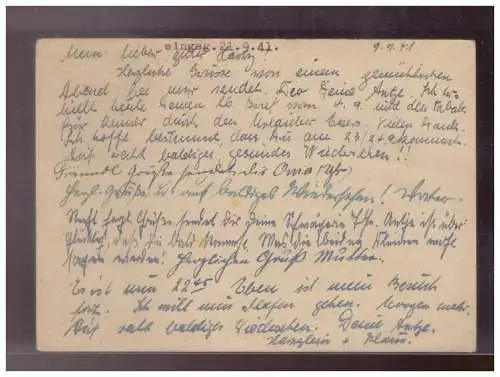 Mein lieber guter Hans! eingeg. 21.9.41. 9.9.41
Herzliche Grüsse von einem gemütlichen
Abend bei mir sendet Dir Deine Antje. Ich er-
hielt heute Deinen lb. Brief vom 4.9. und den Tabak
für durch den Urlauber. Vielen Dank.
Ich hoffe bestimmt, dass Du am 23/24.9. kommst.
Auf recht baldiges, gesundes Wiedersehen!!
Freundl. Grüße sendet die Oma
Herzl. Grüße u. auf baldiges Wiedersehen! Vater.
Recht herzl. Grüße sendet Dir Deine Schwägerin Antje ist über-
glücklich, daß Du bald kommst. Was die beiden Kleinen wohl
sagen werden. Herzlichen Gruß Mutter.
Es ist nun 22 45 Eben ist mein Besuch
fort. Ich will nun schlafen gehen. Morgen mehr.
Auf recht baldiges Wiedersehen. Deine Antje.
Hänslein + Klaus.